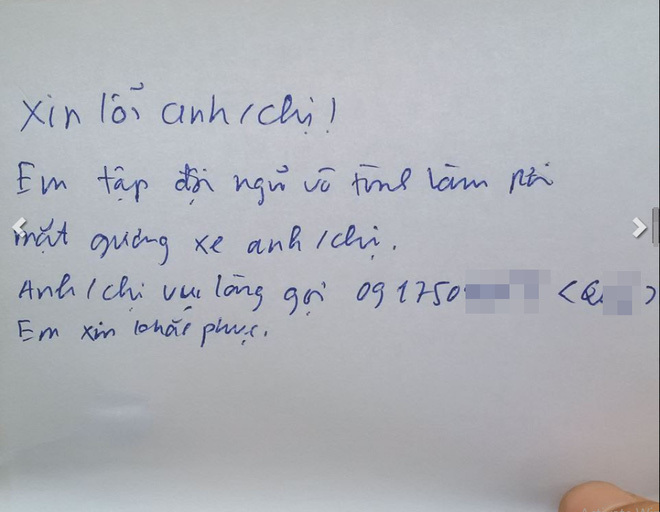 Xin lỗi anh/chị!
Em tập đội ngũ vô tình làm rơi
mặt gương xe anh/chị.
Anh/chị vui lòng gọi 091750 <Q >
Em xin khắc phục.